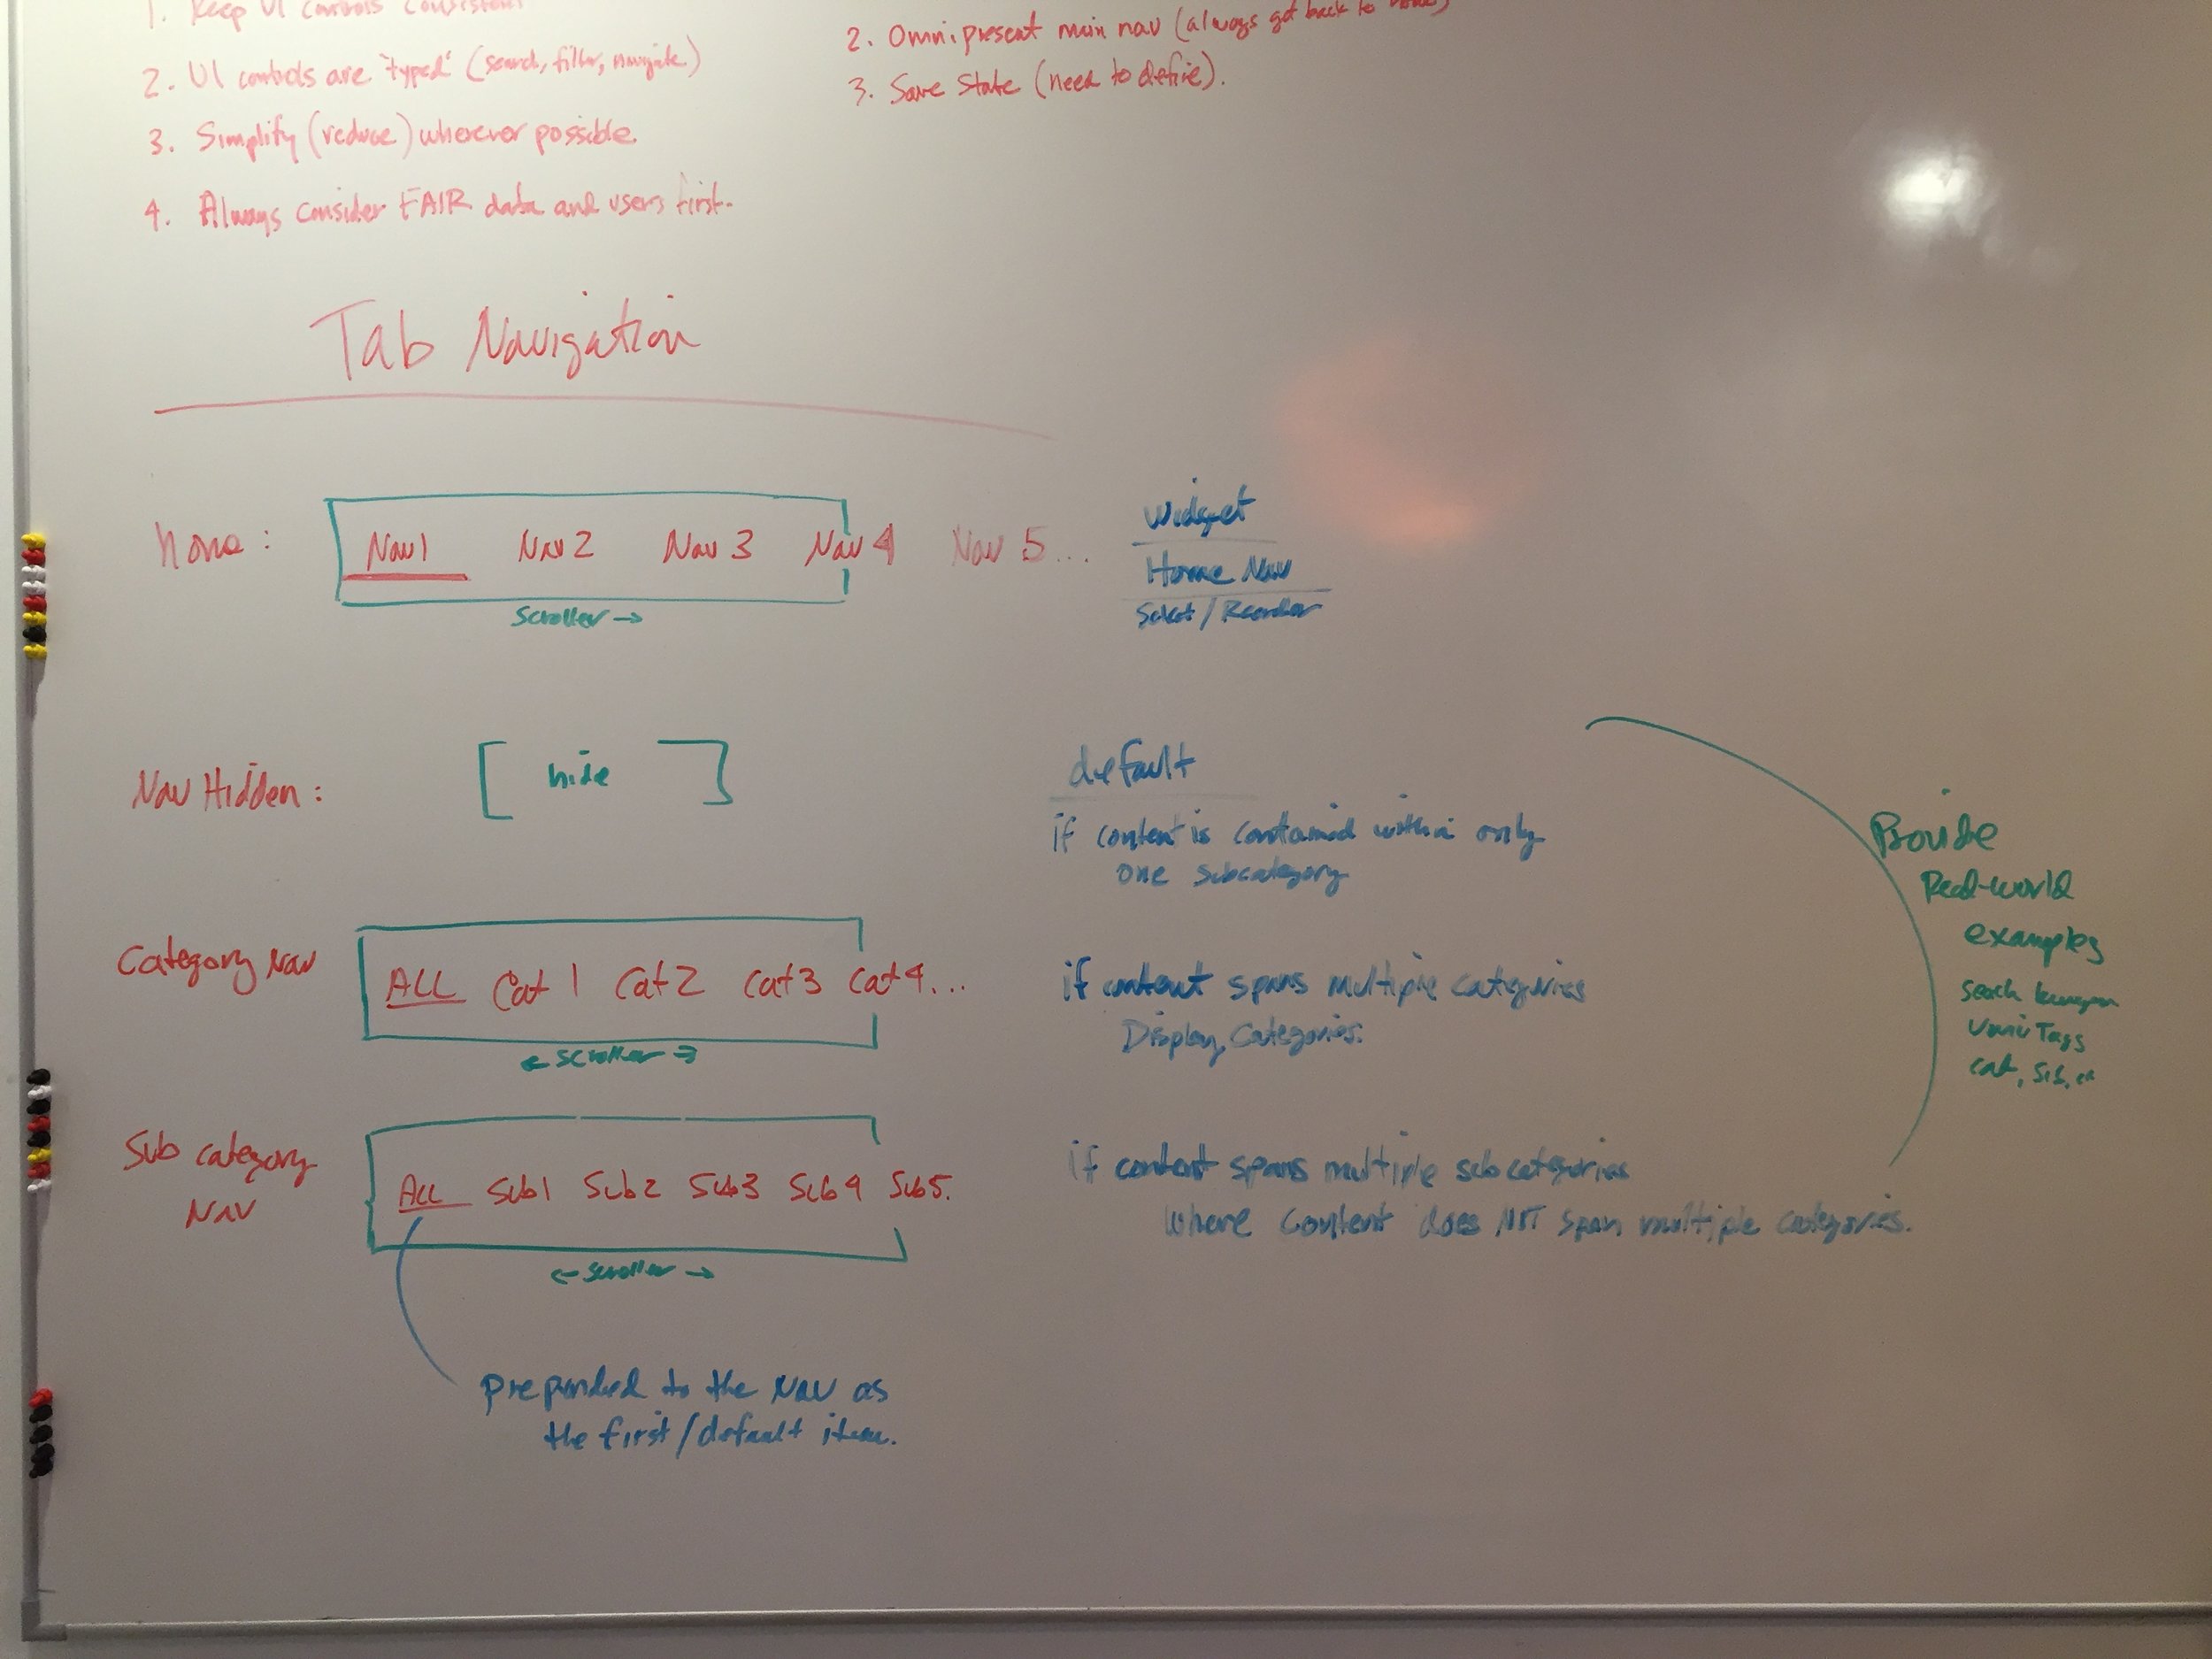 1. Keep UI controls consistent
2. UI controls are "typed" (search, filter, navigate.)
3. Simplify (reduce) wherever possible.
4. Always consider FAIR data and users first.
2. Omnipresent main nav (always get back to home)
3. Save State (need to define).
Tab Navigation
home:
Nav 1 Nav 2 Nav 3 Nav 4 Nav 5...
Scroller →
Widget
Home Nav
Select / Reorder
Nav Hidden:
[ hide ]
default
if content is contained within only
one subcategory
Category Nav
ALL Cat 1 Cat 2 Cat 3 Cat 4...
← scroller →
if content spans multiple categories
Display Categories.
Sub category
Nav
ALL Sub 1 Sub 2 Sub 3 Sub 4 Sub 5.
← scroller →
if content spans multiple subcategories
where content does NOT span multiple categories.
prepended to the Nav as
the first/default item.
Provide
Real-world
examples
search
Tags
cat,